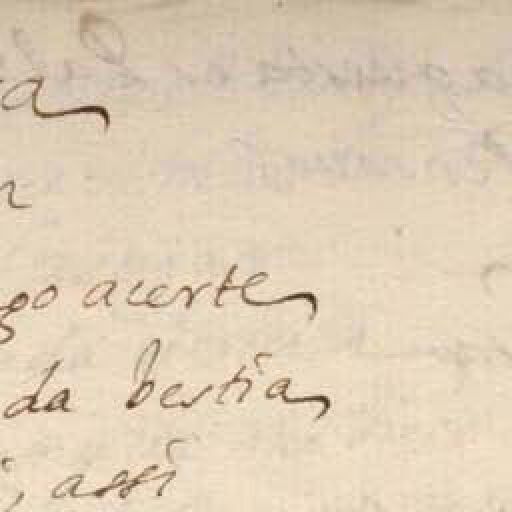 a
n
go acerte
da bestia
, assi